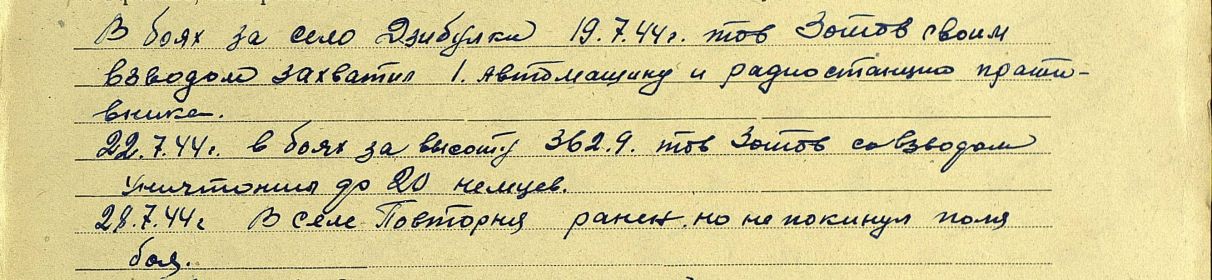 В боях за село Дзибулки 19.7.44г. тов Зотов своим
взводом захватил 1. автомашину и радиостанцию проти-
вника.
22.7.44г. в боях за высоту 362.9. тов Зотов со взводом
уничтожил до 20 немцев.
28.7.44г В селе Повторня ранен. но не покинул поля
боя.